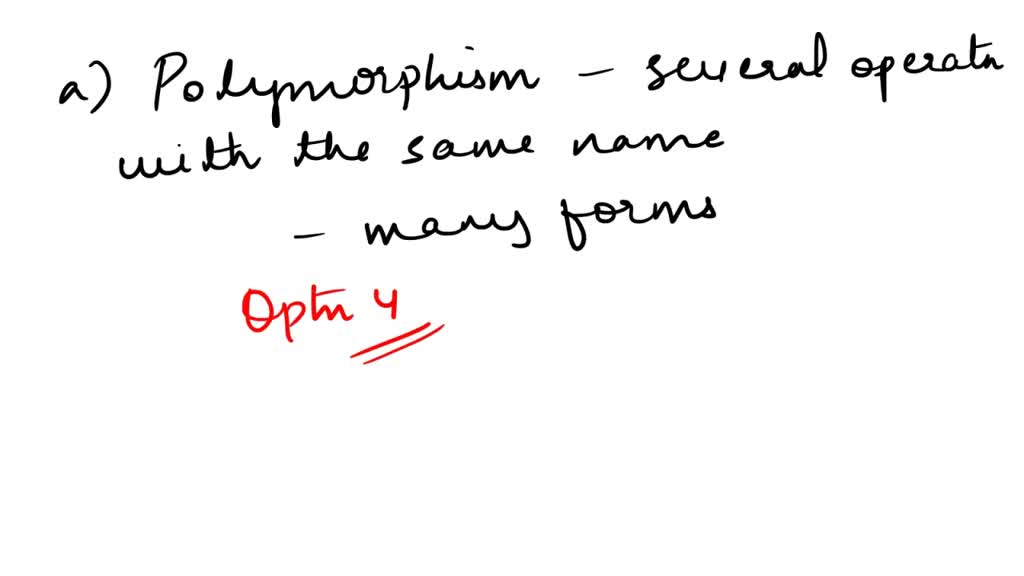 a) Polymorphism - several operatn
with the same name
- many forms
Optn 4